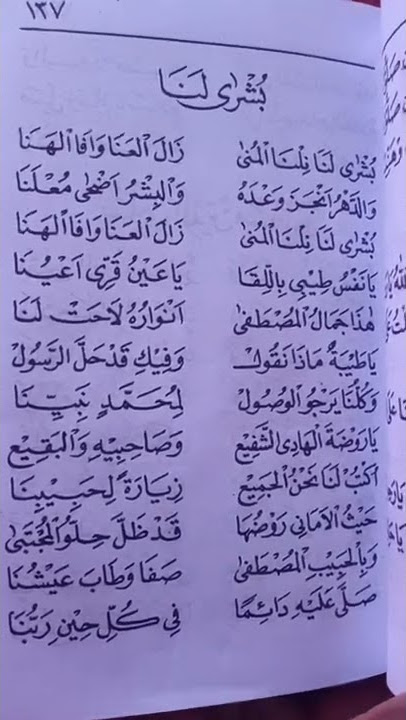 ١٣٧
بُشْرٰى لَنَا
بُشْرٰى لَنَا نِلْنَا الْمُنٰى زَالَ الْعَنَا وَافَا الْهَنَا
وَالدَّهْرُ اَنْجَزَ وَعْدَهُ وَالْبِشْرُ اَضْحٰى مُعْلَنَا
بُشْرٰى لَنَا نِلْنَا الْمُنٰى زَالَ الْعَنَا وَافَا الْهَنَا
يَا نَفْسُ طِيْبِى بِاللِّقَا يَا عَيْنُ قَرِّى اَعْيُنَا
هٰذَا جَمَالُ الْمُصْطَفٰى اَنْوَارُهُ لَاحَتْ لَنَا
يَا طَيْبَةُ مَاذَا نَقُوْلُ وَفِيْكِ قَدْ حَلَّ الرَّسُوْلُ
وَكُلُّنَا يَرْجُو الْوُصُوْلْ لِمُحَمَّدٍ نَبِيِّنَا
يَا رَوْضَةَ الْهَادِى الشَّفِيْعِ وَصَاحِبَيْهِ وَالْبَقِيْعِ
اُكْتُبْ لَنَا نَحْنُ الْجَمِيْعَ زِيَارَةً لِحَبِيْبِنَا
حَيْثُ الْاَمَانِى رَوْضُهَا قَدْ ظَلَّ حِلْوُ الْمُجْتَنٰى
وَبِالْحَبِيْبِ الْمُصْطَفٰى صَفَا وَطَابَ عَيْشُنَا
صَلَّى عَلَيْهِ دَائِمًا فِى كُلِّ حِيْنٍ رَبُّنَا